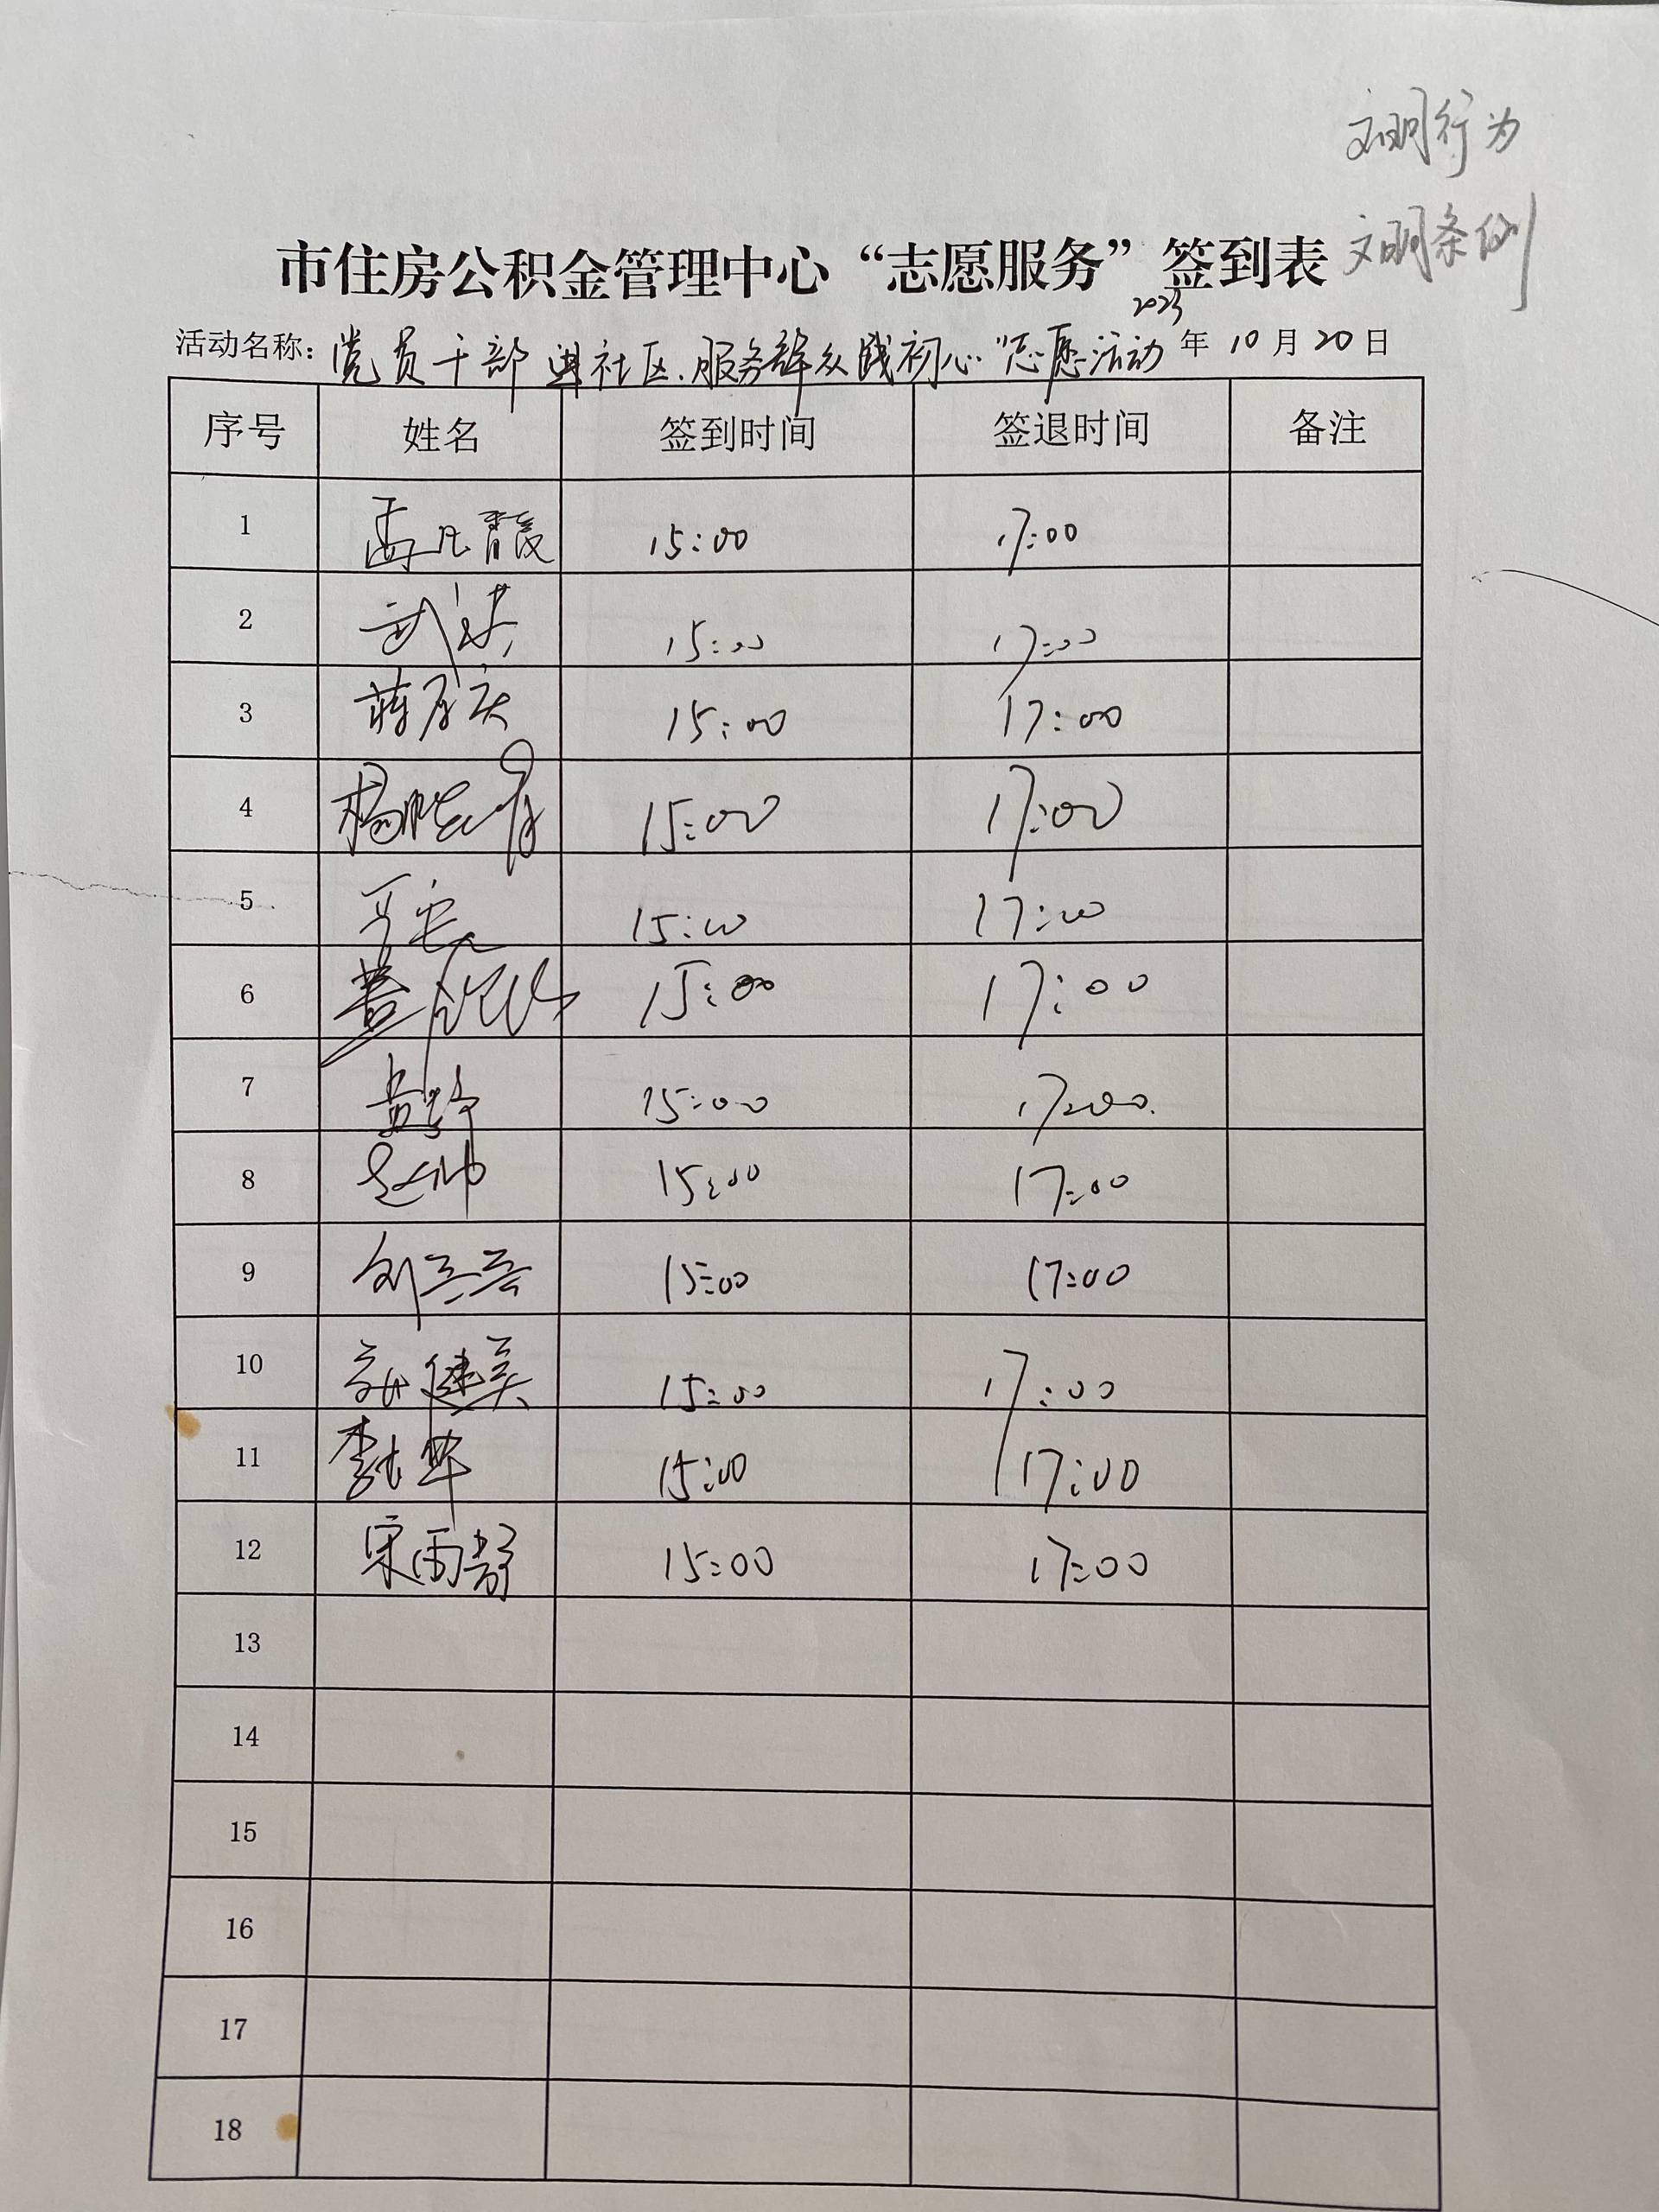 文明行为
文明条例
市住房公积金管理中心“志愿服务”签到表
活动名称：党员干部进社区.服务群众践初心"志愿活动 2023年10月20日
序号 姓名 签到时间 签退时间 备注
1 15:00 17:00
2 武 15:00 17:00
3 蒋 15:00 17:00
4 杨晓 15:00 17:00
5 15:00 17:00
6 15:00 17:00
7 15:00 17:00
8 赵帅 15:00 17:00
9 刘云芸 15:00 17:00
10 健美 15:00 17:00
11 李 华 15:00 17:00
12 宋雨静 15:00 17:00
13
14
15
16
17
18